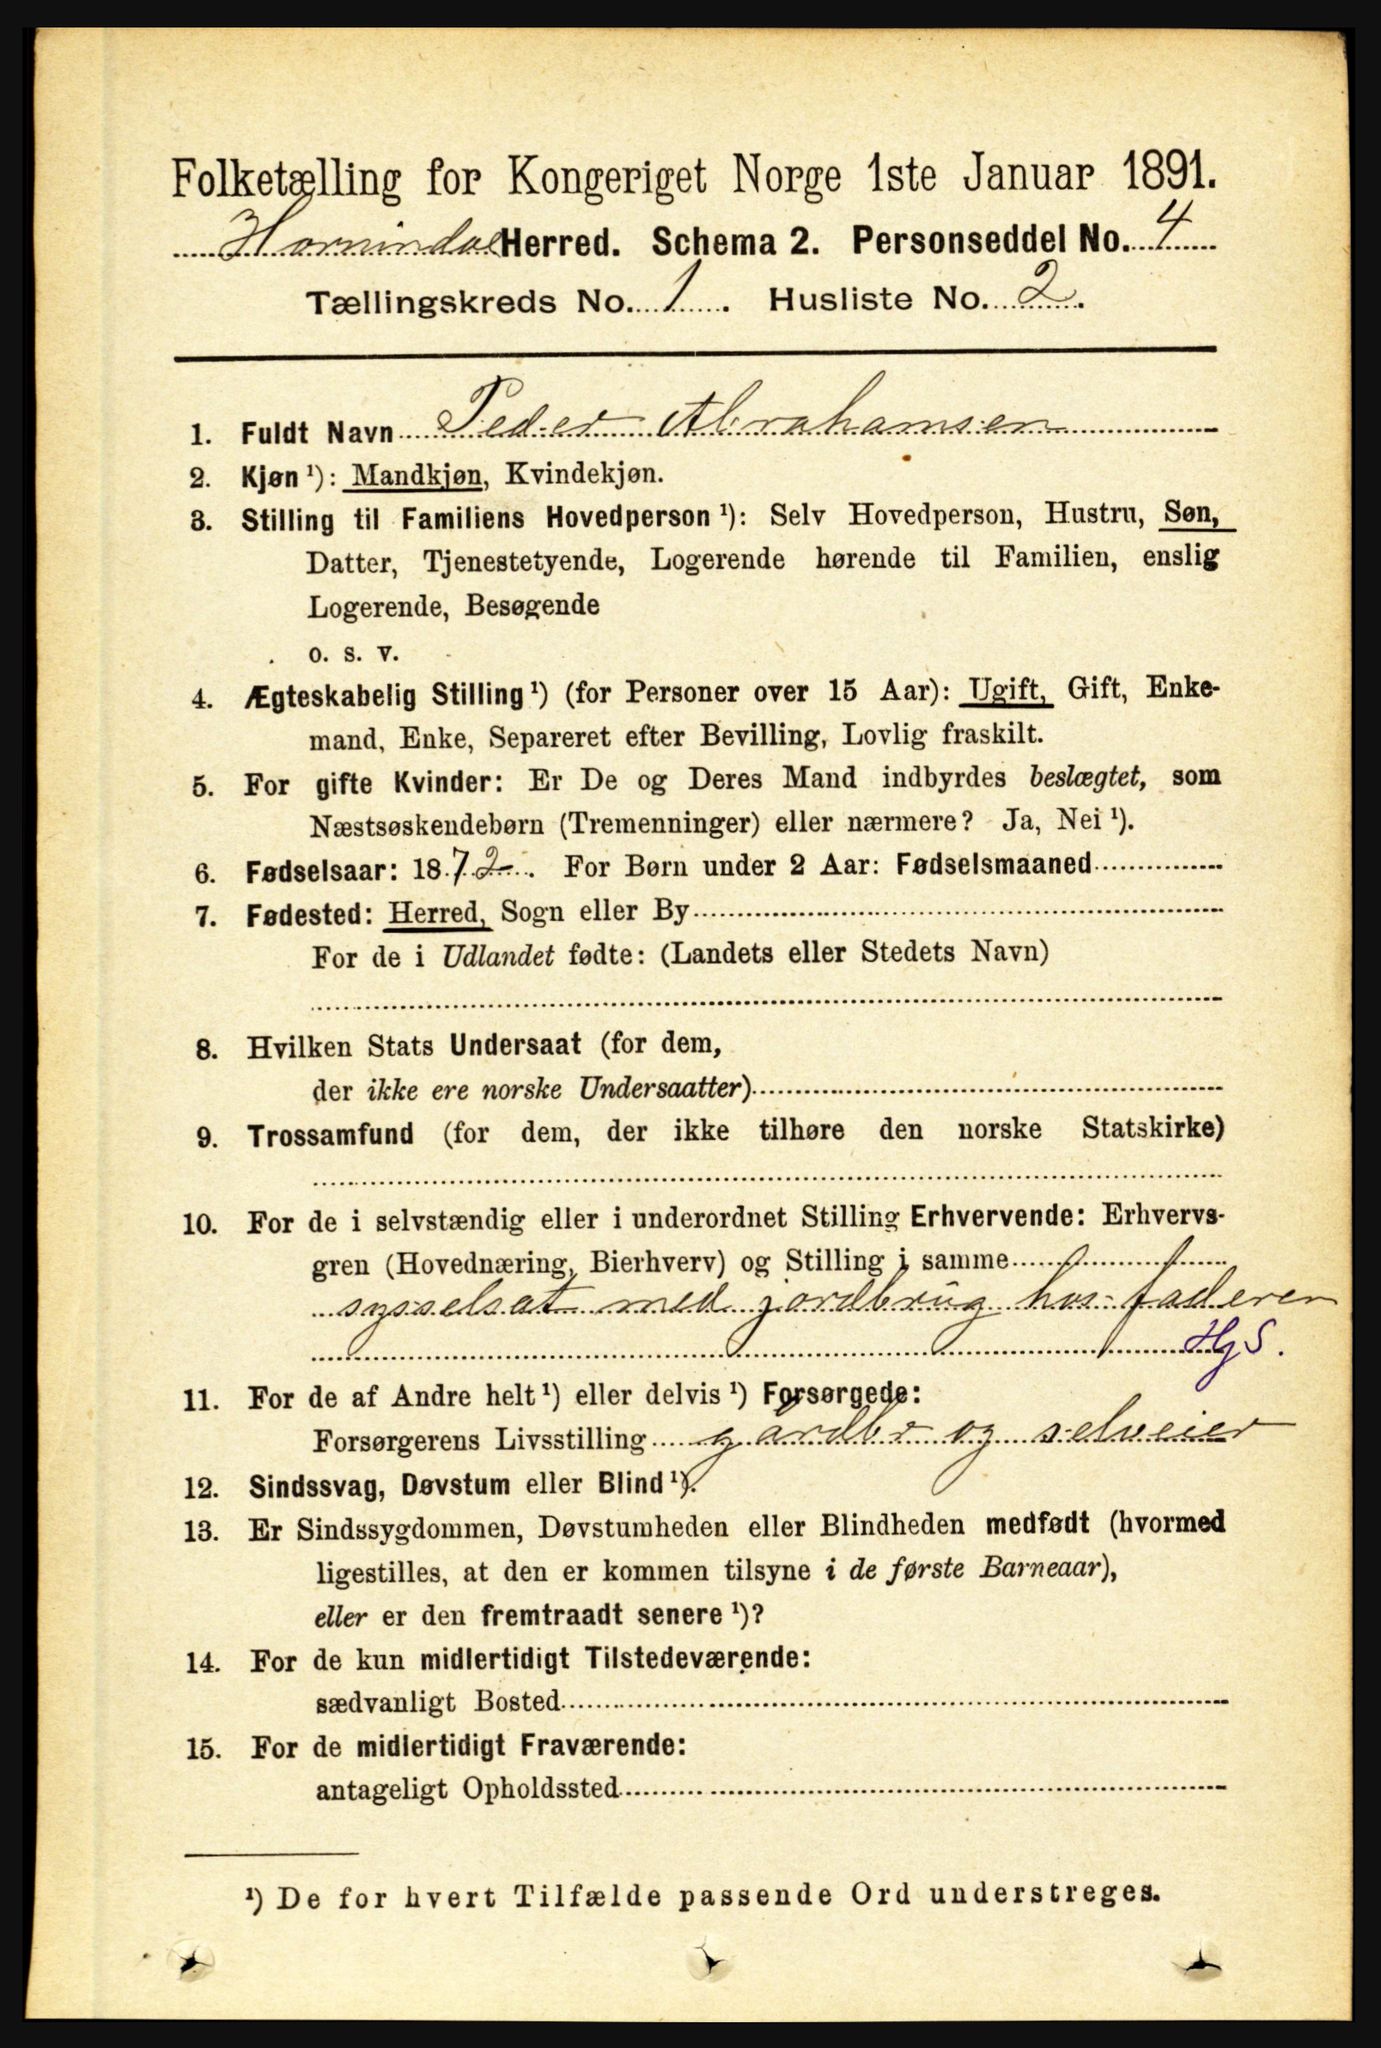 Folketælling for Kongeriget Norge 1ste Januar 1891.
Hornindal Herred. Schema 2. Personseddel No. 4
Tællingskreds No. 1. Husliste No. 2.
1. Fuldt Navn Peder Abrahamsen
2. Kjøn ¹): Mandkjøn, Kvindekjøn.
3. Stilling til Familiens Hovedperson ¹): Selv Hovedperson, Hustru, Søn,
Datter, Tjenestetyende, Logerende hørende til Familien, enslig
Logerende, Besøgende
o. s. v.
4. Ægteskabelig Stilling ¹) (for Personer over 15 Aar): Ugift, Gift, Enke-
mand, Enke, Separeret efter Bevilling, Lovlig fraskilt.
5. For gifte Kvinder: Er De og Deres Mand indbyrdes beslægtet, som
Næstsøskendebørn (Tremenninger) eller nærmere? Ja, Nei ¹).
6. Fødselsaar: 1872. For Børn under 2 Aar: Fødselsmaaned
7. Fødested: Herred, Sogn eller By
For de i Udlandet fødte: (Landets eller Stedets Navn)
8. Hvilken Stats Undersaat (for dem,
der ikke ere norske Undersaatter)
9. Trossamfund (for dem, der ikke tilhøre den norske Statskirke)
10. For de i selvstændig eller i underordnet Stilling Erhvervende: Erhvervs-
gren (Hovednæring, Bierhverv) og Stilling i samme
sysselsat med jordbrug hos faderen
HgS.
11. For de af Andre helt ¹) eller delvis ¹) Forsørgede:
Forsørgerens Livsstilling gårdbr og selveier
12. Sindssvag, Døvstum eller Blind ¹).
13. Er Sindssygdommen, Døvstumheden eller Blindheden medfødt (hvormed
ligestilles, at den er kommen tilsyne i de første Barneaar),
eller er den fremtraadt senere ¹)?
14. For de kun midlertidigt Tilstedeværende:
sædvanligt Bosted
15. For de midlertidigt Fraværende:
antageligt Opholdssted
¹) De for hvert Tilfælde passende Ord understreges.